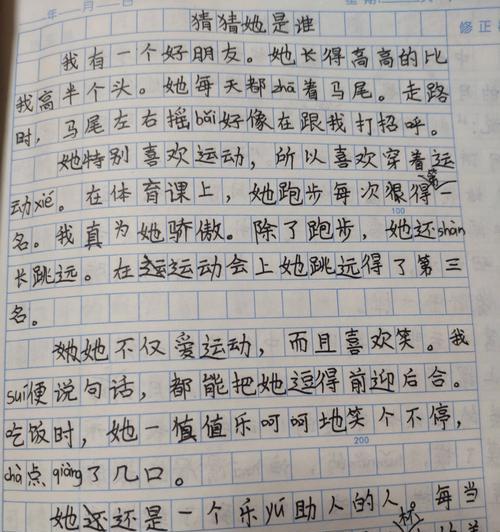 年 月 日
星期
修正
猜猜她是谁
我有一个好朋友。她长得高高的比
我高半个头。她每天都zhā着马尾。走路
时，马尾左右摇bǎi好像在跟我打招呼。
她特别喜欢运动，所以喜欢穿着运
动xié。在体育课上，她跑步每次狠得第一
100
名。我真为她骄傲。除了跑步，她还shàn
长跳远。在运运动会上她跳远得了第三
名。
她她不仅爱运动，而且喜欢笑。我
suí便说句话，都能把她逗得前迎后合。
吃饭时，她一值值乐呵呵地笑个不停，
200
chà点qiàng了几口。
她还还是一个乐yú助人的人。每当